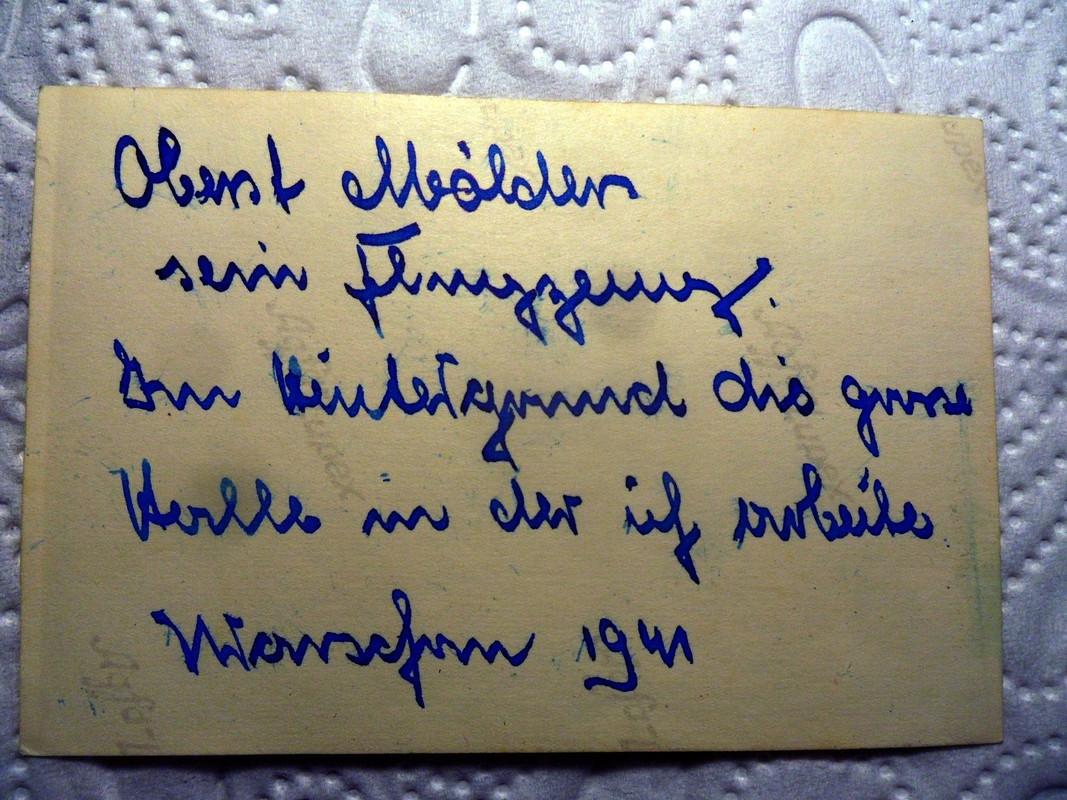 Oberst Mölders
sein Flugzeug.
Im Hintergrund die grose
Halle in der ich arbeite
Warschau 1941
Agfa-Lupex